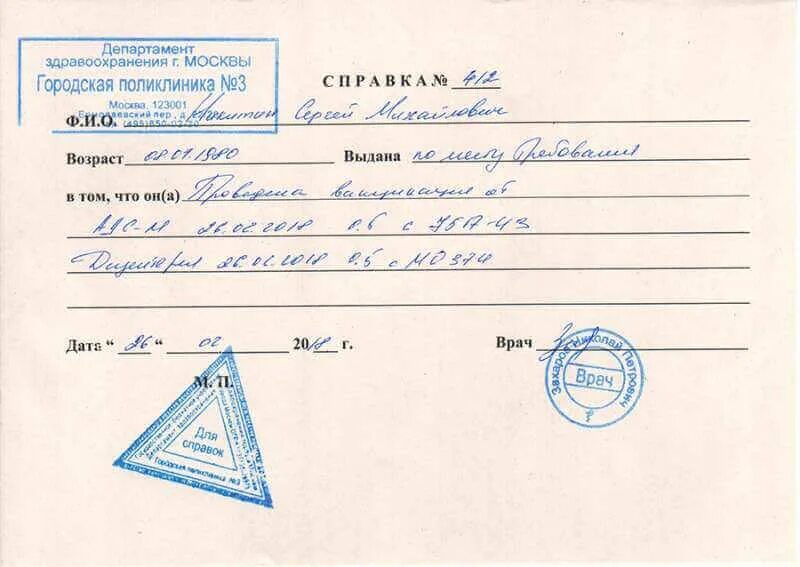 Департамент
здравоохранения г. МОСКВЫ
Городская поликлиника №3
Москва, 123001
Ермолаевский пер., д
(495)650-02-20
СПРАВКА № 412
Ф.И.О. Никитин Сергей Михайлович
Возраст 08.07.1980 Выдана по месту Требования
в том, что он(а) Проведена вакцинация от
АДС-М 26.02.2018 0.5 с
26.02.2018 0.5 с
Дата " 26 " 02 2018 г. Врач
М. П.
Захаров Николай Петрович
Врач
Для
справок
Городская поликлиника №3